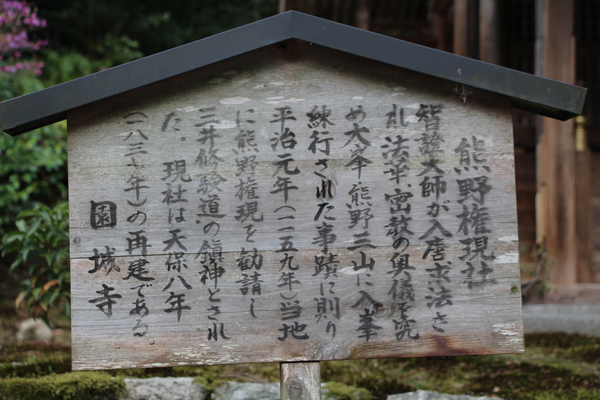 熊野権現社
智證大師が入唐求法さ
れ法華、密教の奥儀を究
め大峯熊野三山に入峯
練行された事蹟に則り
平治元年(一一五九年)当地
に熊野権現を勧請し
三井修験道の鎮神とされ
た。現社は天保八年
(一八三七年)の再建である。
園城寺